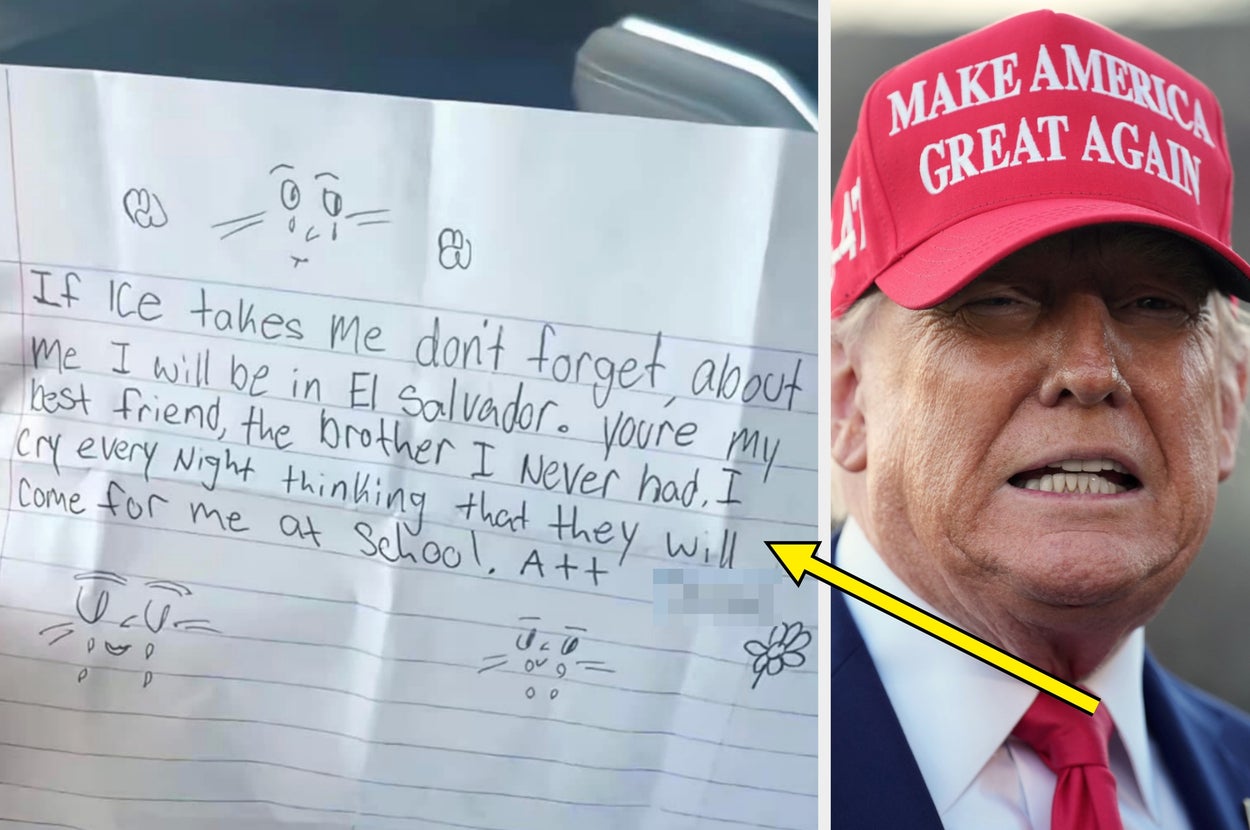 If ICe takes me don't forget about
me I will be in El Salvador. you're my
best friend, the brother I Never had. I
cry every Night thinking that they will
come for me at School. A++
MAKE AMERICA
GREAT AGAIN
-47